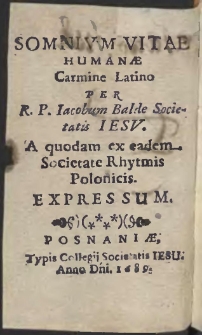 SOMNIVM VITAE
HUMANÆ
Carmine Latino
PER
R. P. Iacobum Balde Socie-
tatis IESV.
A quodam ex eadem
Societate Rhytmis
Polonicis.
EXPRESSUM.
POSNANIÆ,
Typis Collegij Societatis IESU.
Anno Dñi. 1689.